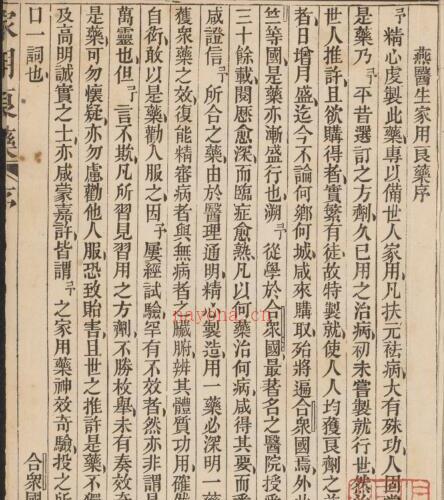 燕醫生家用良藥序
予精心虔製此藥專以備世人家用凡扶元祛病大有殊功人因
是藥乃予平昔選訂之方劑久已用之治病初未嘗製就行世然
世人推許且欲購得者實繁有徒故特製就使人人均獲良劑之
者日增月盛迄今不論何鄉何城咸來購取殆將遍合衆國焉外此
竺等國是藥亦漸盛行也溯予從學於合衆國最著名之醫院授
三十餘載閱歷愈深而臨症愈熟凡以何藥治何病咸得其要而
咸證信予所合之藥由於醫理通明精心製造用一藥必深明一
獲衆藥之效復能精審病者與無病者之臟腑辨其體質功用確然
自衒敢以是藥勸人服之因予屢經試驗罕有不效者然亦非謂是
萬靈也但予言不欺凡所習見習用之方劑不勝枚舉未有奏效
是藥可勿懷疑亦勿慮勸他人服恐致貽害且世之推許是藥不
及高明誠實之士亦咸蒙嘉許皆謂予之家用藥神效奇驗投之所
口一詞也 合衆國
家用良藥 序
nayona.cn